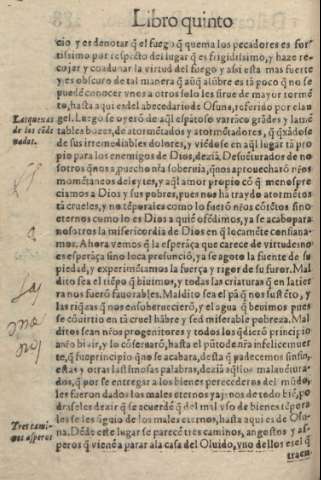 Libro quinto
cio y es denotar q̃ el fuego q̃ quema los pecadores es for
tissimo por respecto del lugar q̃ es frigidissimo, y haze re-
cojar y coadunar la virtud del fuego y assi esta mas fuerte
y es obscuro de tal manera q̃ aũq̃ alũbre es tã poco q̃ no se
puedẽ conocer vnos a otros solo les sirue de mayor tormẽ
to, hasta aqui es del abecedario de Osuna, referido por el an
gel. Luego se oyerõ de aq̃l espãtoso varrãco grãdes y lamẽ
tables bozes, de atormẽtados y atormẽtadores, q̃ q̃xãdose
de sus irremediables dolores, y viẽdose en aq̃l lugar tã pro
pio para los enemigos de Dios, deziã. Desuẽturados de no
sotros que nos aprouecho nr̃a soberuia, que nos aprouecharõ nr̃os
mometaneos deleytes, y aq̃l amor propio cõ q̃ menospre
ciamos a Dios y sus pobres, pues nos ha traydo a tormẽtos
tã crueles, y no tẽporales como lo fuerõ nr̃os cõtẽtos sino
eternos como lo es Dios a quiẽ ofẽdimos, ya se acabo para
nosotros la misericordia de Dios en q̃ locamẽte confiana-
mos. Ahora vemos q̃ la esperãça que carece de virtudes no
es esperãça sino loca presunciõ, ya se agoto la fuente de su
piedad, y experimẽtamos la fuerça y rigor de su furor. Mal
dito sea el tiẽpo q̃ biuimos, y todas las criaturas q̃ en la tie
ra nos fuerõ fauorables. Maldito sea el pã q̃ nos sustẽto, y
las riq̃zas q̃ nos ensoberuecierõ, y el agua q̃ beuimos pues
se cõuirtio en tã cruel hãbre y sed, miserable pobreza. Mal
ditos sean nr̃os progenitores y todos los q̃ dierõ principio
a nr̃o biuir, y lo cõseruarõ, hasta el pũto de nr̃a infelice muer
te, q̃ fue principio q̃ no se acabara, desta q̃ padecemos sin fin,
estas y otras lastimosas palabras, deziã aq̃llos malauẽtura
dos, q̃ por se entregar a los bienes perecederos del mũdo,
les fueron dados los males eternos ya q̃ nos de todo biẽ, po
drãseles dexir q̃ se acuerdẽ q̃ del mal vso de bienes tẽpora
les se les siguio de los males eternos, hasta aqui es de Osu-
na. Dẽde este lugar se parecẽ tres caminos, angostos y as-
peros q̃ vienẽ a parar a la casa del Oluido, vno dellos es el q̃
traen
La quema
de los cõde
nados.
Tres cami-
nos asperos